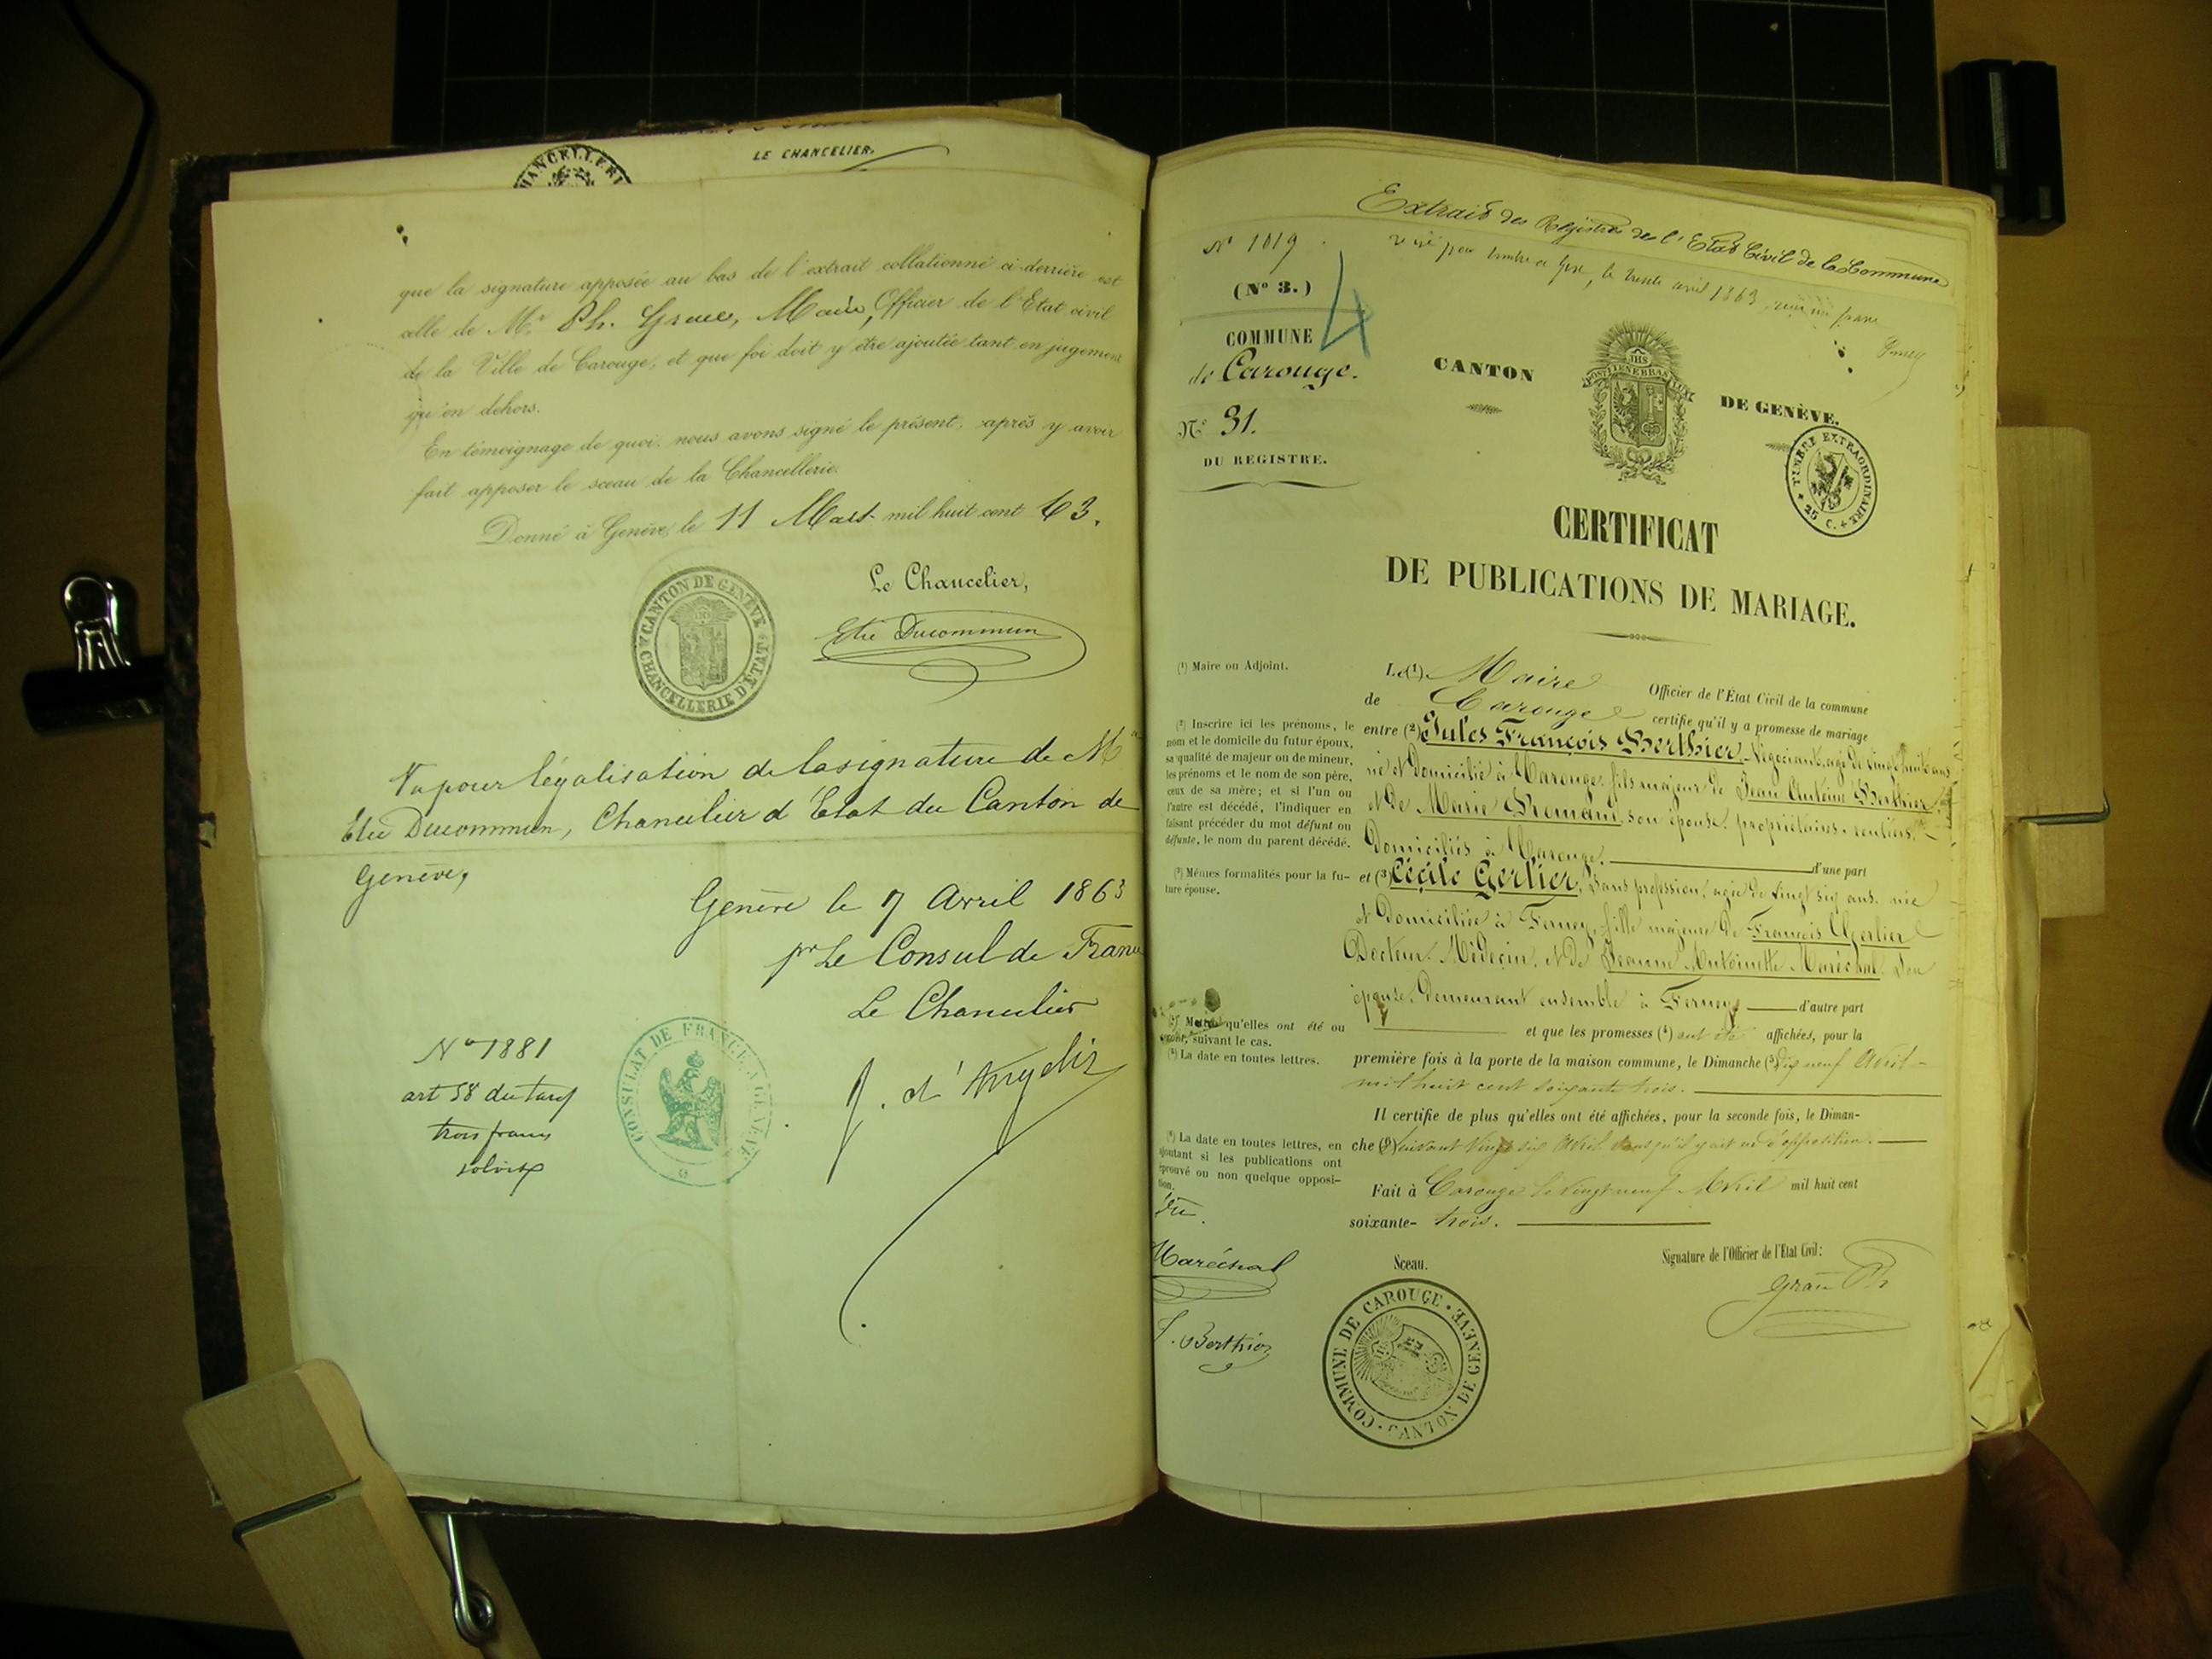 LE CHANCELIER.
CHANCELLERI
que la signature apposée au bas de l'extrait collationné ci-derrière est
celle de Mr. Ph. Grau, Maire, Officier de l'Etat civil
de la Ville de Carouge, et que foi doit y être ajoutée tant en jugement
qu'en dehors.
En témoignage de quoi, nous avons signé le présent, après y avoir
fait apposer le sceau de la Chancellerie.
Donné à Genève, le 11 Mars mil huit cent 63.
CANTON DE GENÈVE
CHANCELLERIE D'ÉTAT
Le Chancelier,
Elie Ducommun
Vu pour légalisation de la signature de Mr
Elie Ducommun, Chancelier d'Etat du Canton de
Genève,
Genève le 7 Avril 1863
pr Le Consul de France
Le Chancelier
J. d'Angelis
No 1881
art 58 du tarif
trois francs
CONSULAT DE FRANCE A GENÈVE
Extrait des Registres de l'Etat Civil de la Commune
No 1019
le trente avril 1863, un franc
(No 3.)
4
COMMUNE
de Carouge.
No 31.
DU REGISTRE.
CANTON DE GENÈVE.
JHS
POST TENEBRAS LUX
TIMBRE EXTRAORDINAIRE
25 C.
CERTIFICAT
DE PUBLICATIONS DE MARIAGE.
(1) Maire ou Adjoint.
Le (1) Maire Officier de l'État Civil de la commune
de Carouge certifie qu'il y a promesse de mariage
(2) Inscrire ici les prénoms, le
nom et le domicile du futur époux,
sa qualité de majeur ou de mineur,
les prénoms et le nom de son père,
ceux de sa mère; et si l'un ou
l'autre est décédé, l'indiquer en
faisant précéder du mot défunt ou
défunte, le nom du parent décédé.
entre (2) Jules François Berthier, Négociant, agé de vingt huit ans
né et domicilié à Carouge, fils majeur de Jean Antoine Berthier
et de Marie Romand, son épouse, propriétaires-rentiers,
Domiciliés à Carouge. d'une part
(3) Mêmes formalités pour la fu-
ture épouse.
et (3) Cécile Gerlier, sans profession, agée de vingt six ans, née
et domiciliée à Ferney, fille majeure de François Gerlier
Docteur Médecin, et de Jeanne Antoinette Maréchal, son
épouse, demeurant ensemble à Ferney d'autre part
(4) Mettre qu'elles ont été ou
suivant le cas.
et que les promesses (4) ont été affichées, pour la
(5) La date en toutes lettres.
première fois à la porte de la maison commune, le Dimanche (5) dix neuf Avril
mil huit cent soixante trois.
Il certifie de plus qu'elles ont été affichées, pour la seconde fois, le Diman-
(6) La date en toutes lettres, en
ajoutant si les publications ont
éprouvé ou non quelque opposi-
tion.
che (6) suivant vingt six Avril sans qu'il y ait eu d'opposition.
Fait à Carouge le vingt neuf Avril mil huit cent
soixante- trois.
Maréchal
J. Berthier
Sceau.
Signature de l'Officier de l'Etat Civil:
Grau Ph
COMMUNE DE CAROUGE
CANTON DE GENÈVE